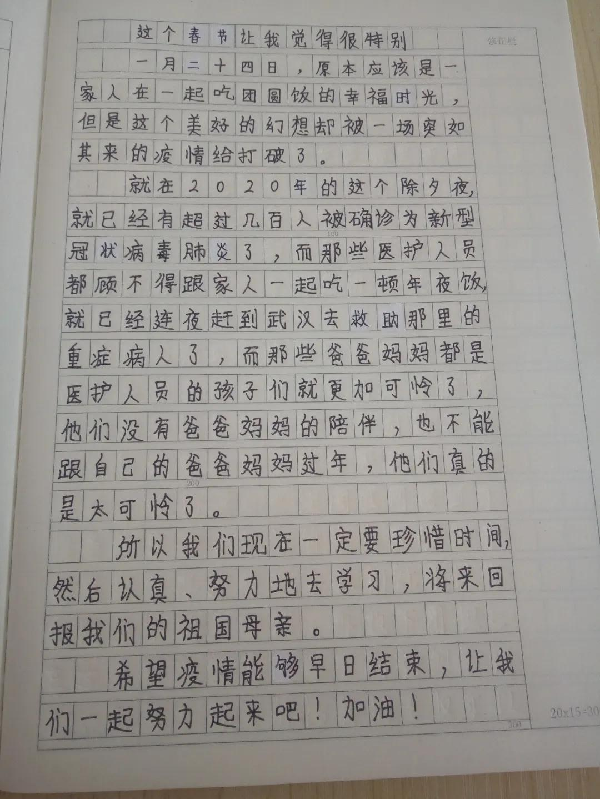 这个春节让我觉得很特别
一月二十四日，原本应该是一
家人在一起吃团圆饭的幸福时光，
但是这个美好的幻想却被一场突如
其来的疫情给打破了。
就在2020年的这个除夕夜，
就已经有超过几百人被确诊为新型
冠状病毒肺炎了，而那些医护人员
都顾不得跟家人一起吃一顿年夜饭，
就已经连夜赶到武汉去救助那里的
重症病人了，而那些爸爸妈妈都是
医护人员的孩子们就更加可怜了，
他们没有爸爸妈妈的陪伴，也不能
跟自己的爸爸妈妈过年，他们真的
是太可怜了。
所以我们现在一定要珍惜时间，
然后认真、努力地去学习，将来回
报我们的祖国母亲。
希望疫情能够早日结束，让我
们一起努力起来吧！加油！
20×15=30